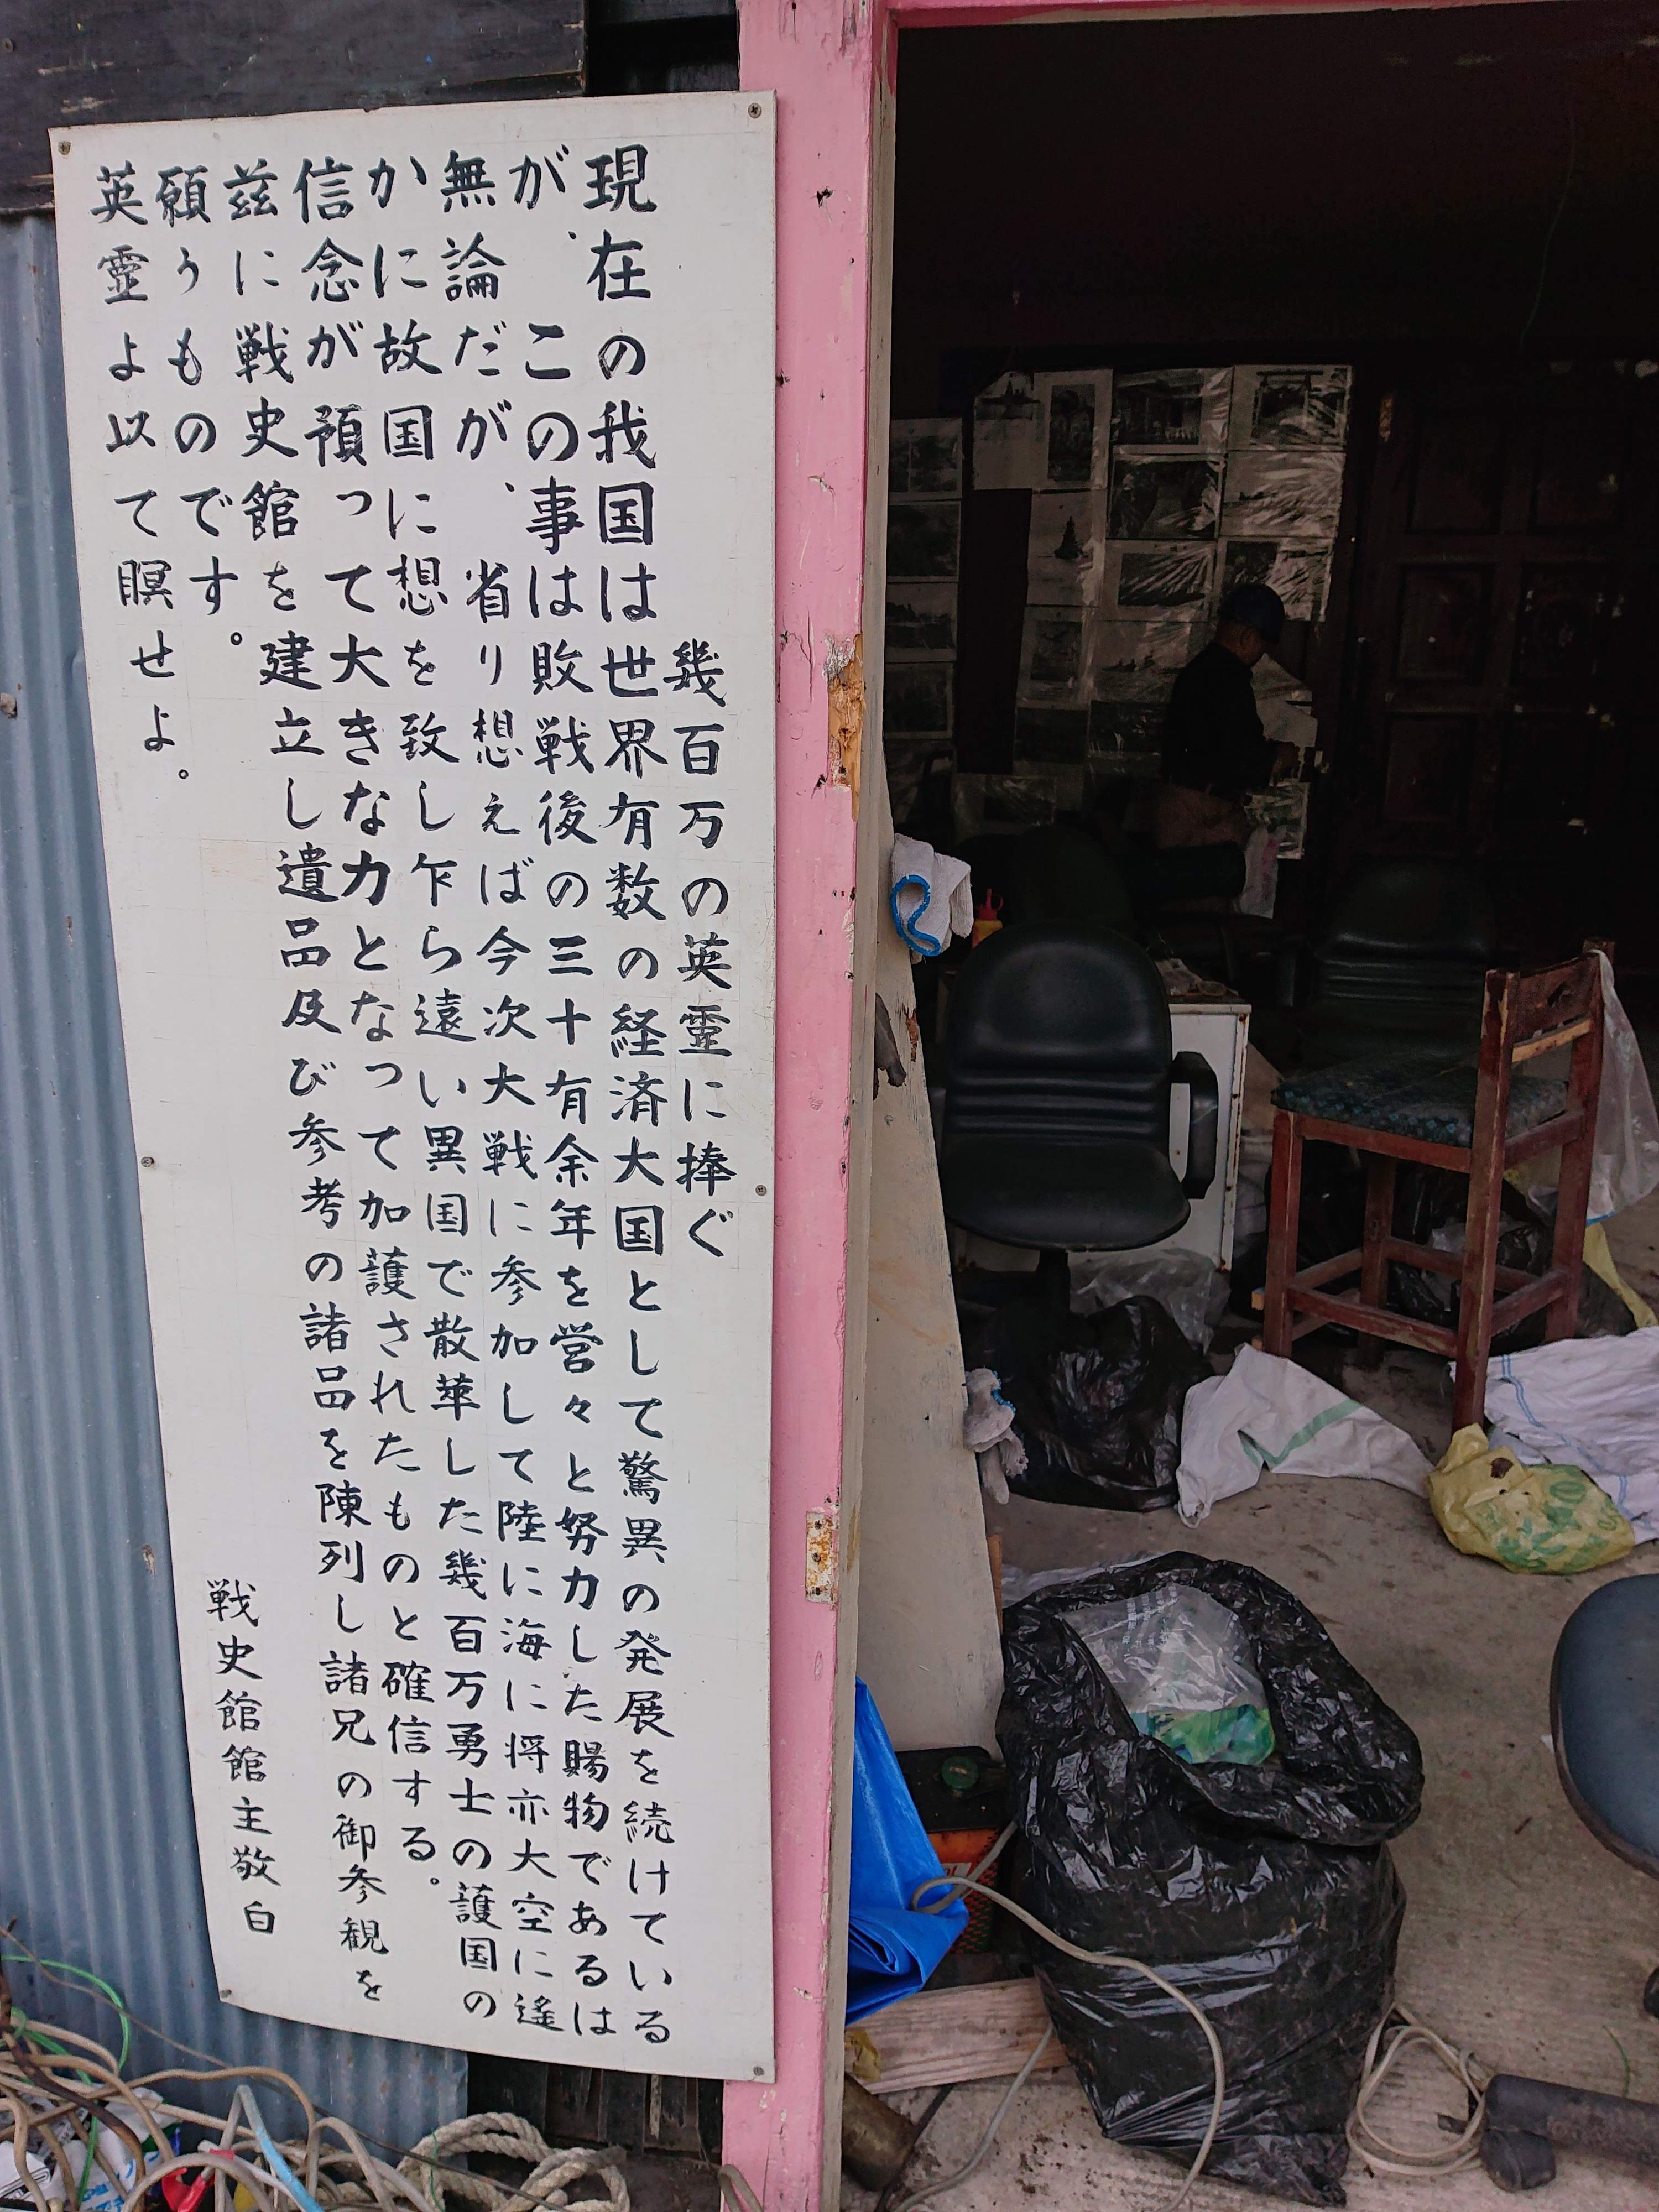 幾百万の英霊に捧ぐ
現在の我国は世界有数の経済大国として驚異の発展を続けている
が、この事は敗戦後の三十有余年を営々と努力した賜物であるは
無論だが、省り想えば今次大戦に参加して陸に海に将亦大空に遙
かに故国に想を致し乍ら遠い異国で散華した幾百万勇士の護国の
信念が預って大きな力となって加護されたものと確信する。
茲に戦史館を建立し遺品及び参考の諸品を陳列し諸兄の御参観を
願うものです。
英霊よ以て瞑せよ。
戦史館館主敬白